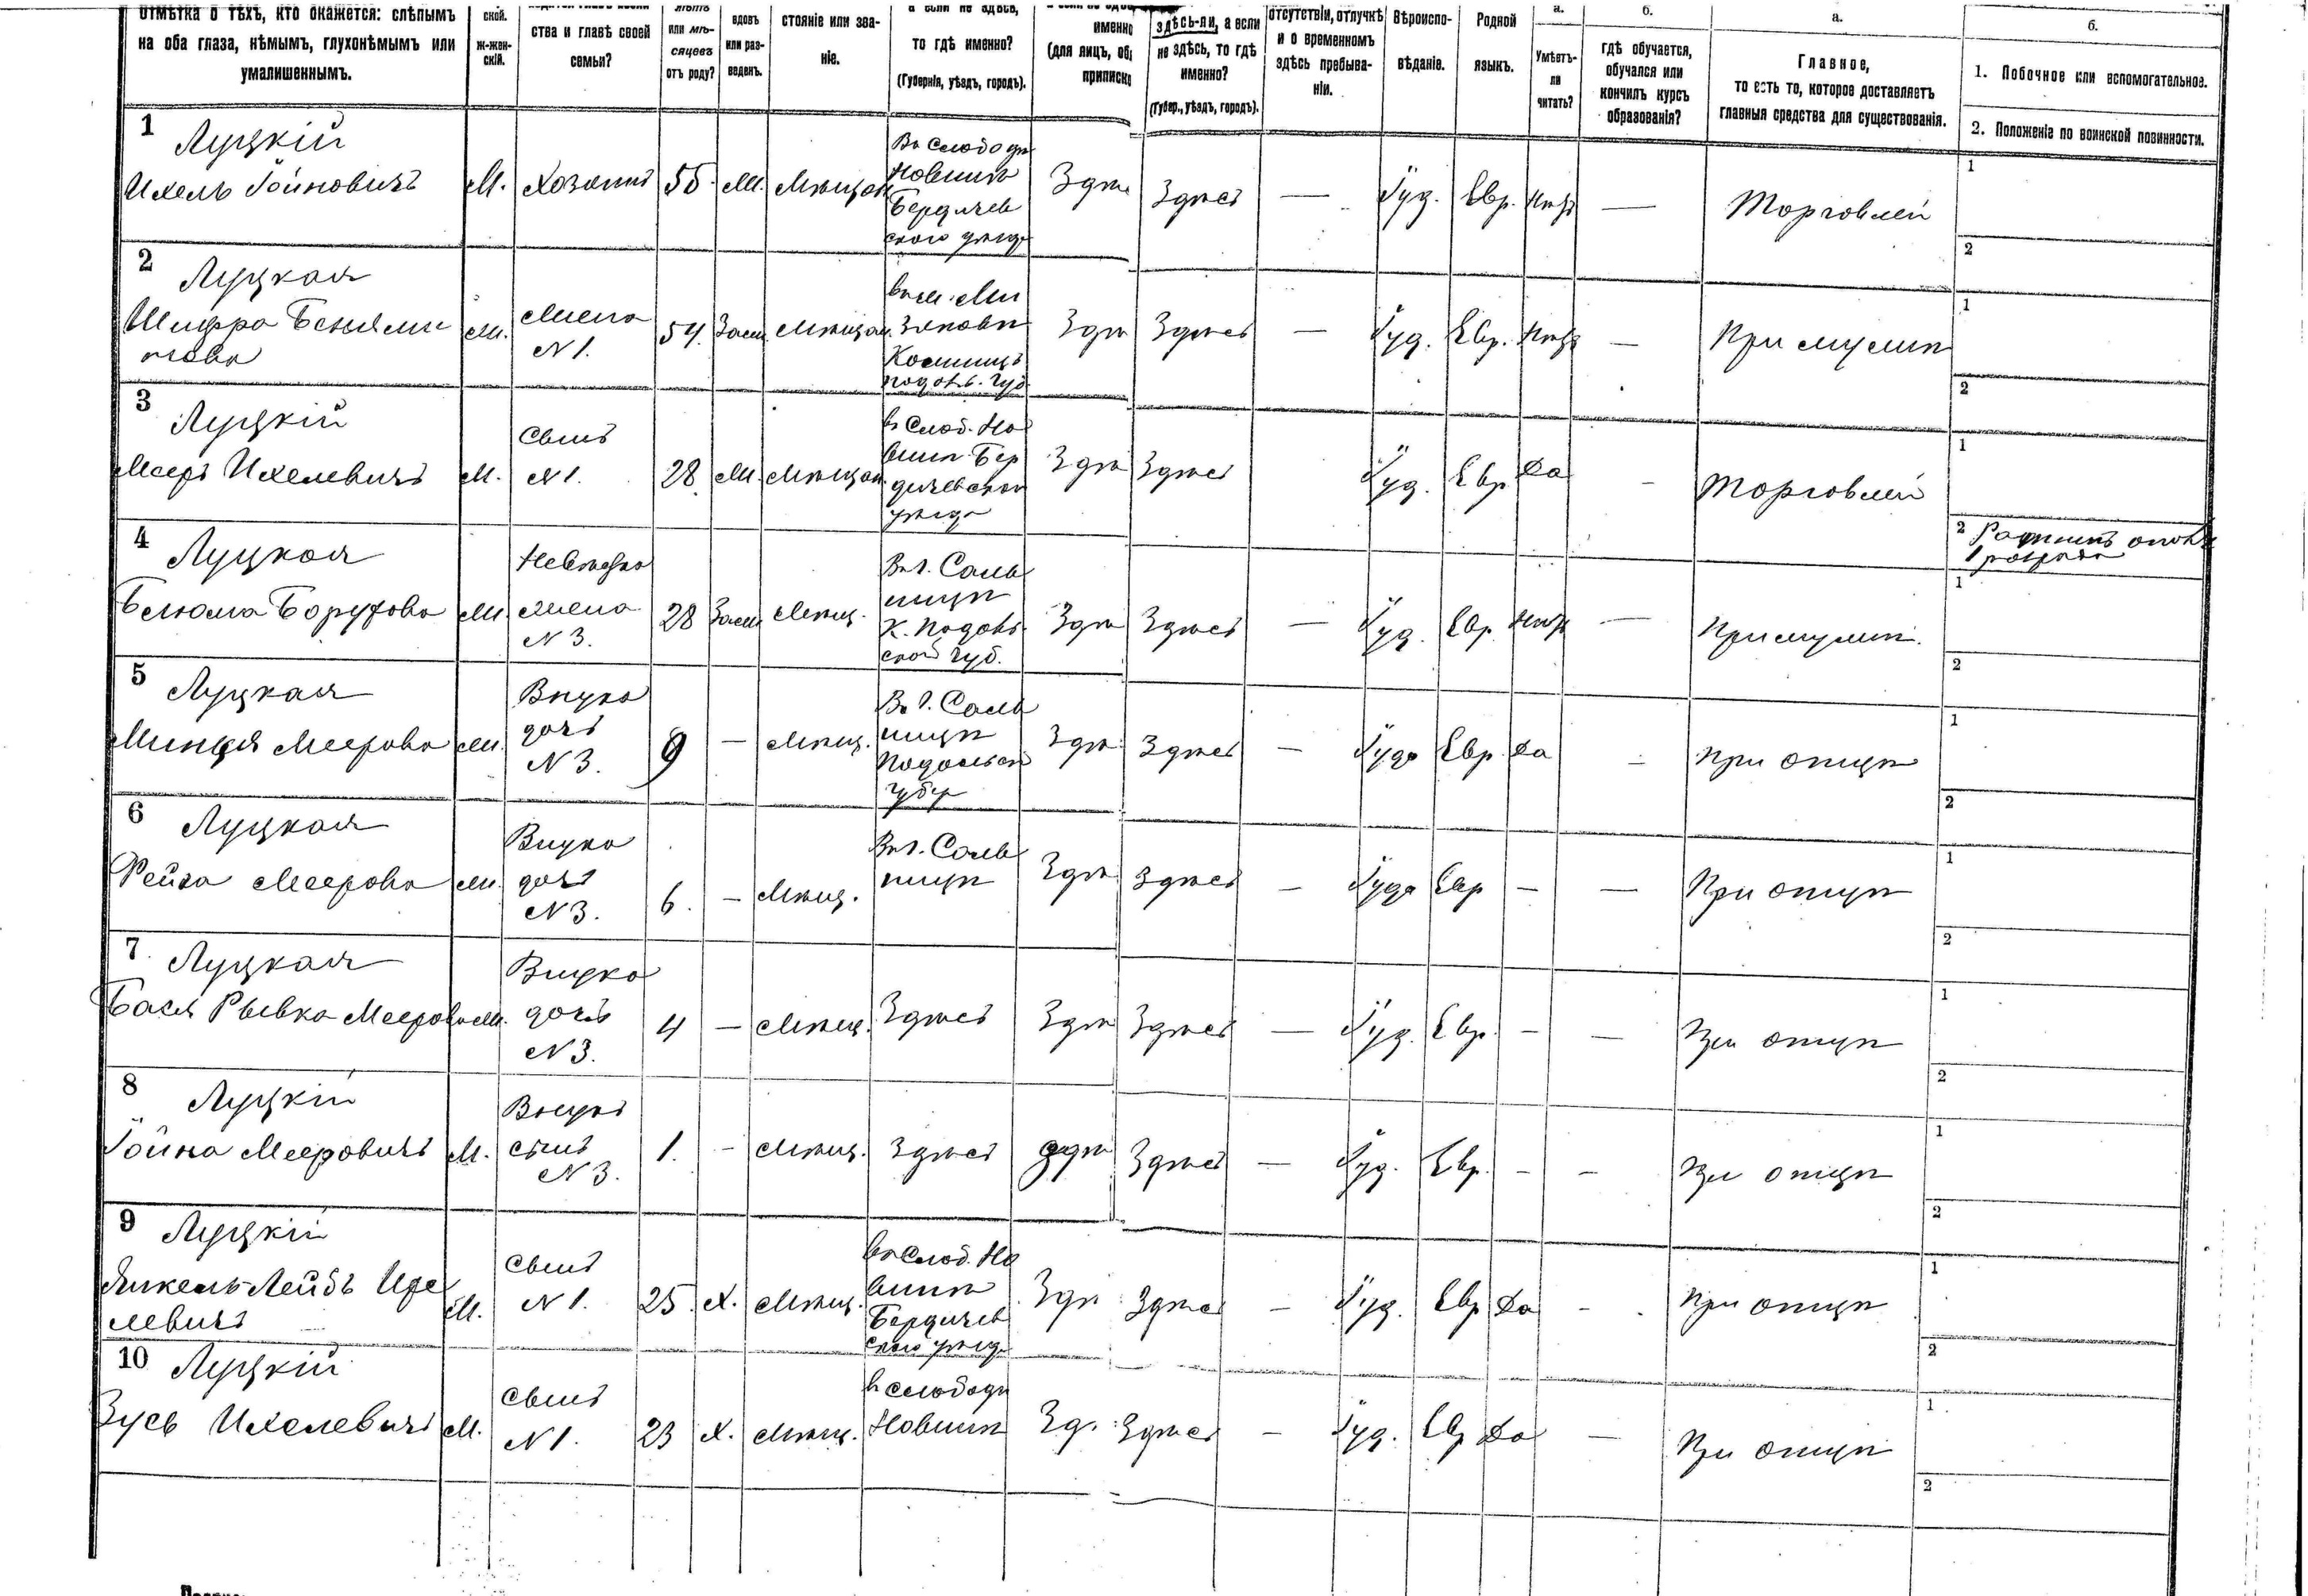 отмѣтка о тѣхъ, кто окажется: слѣпымъ
на оба глаза, нѣмымъ, глухонѣмымъ или
умалишеннымъ.
ской.
ж-жен-
скій.
ства и главѣ своей
семьи?
или мѣ-
сяцевъ
отъ роду?
вдовъ
или раз-
веденъ.
стояніе или зва-
ніе.
а если не здѣсь,
то гдѣ именно?
(Губернія, уѣздъ, городъ).
именно
(для лицъ, обя
приписко
здѣсь-ли, а если
не здѣсь, то гдѣ
именно?
(Губер., уѣздъ, городъ).
отсутствіи, отлучкѣ
и о временномъ
здѣсь пребыва-
ніи.
Вѣроиспо-
вѣданіе.
Родной
языкъ.
а.
Умѣетъ-
ли
читать?
б.
гдѣ обучается,
обучался или
кончилъ курсъ
образованія?
а.
Главное,
то есть то, которое доставляетъ
главныя средства для существованія.
б.
1. Побочное или вспомогательное.
2. Положеніе по воинской повинности.
1 Луцкій
Ихель Іойновичъ
М.
Хозяинъ
55
М.
Мѣщан
Въ слободѣ
Новшинѣ
Бердичев
ского уѣзда
Здѣ
Здѣсь
—
Іуд.
Евр.
Нѣтъ
—
Торговлей
1
2
2 Луцкая
Шифра Беньями
нова
Ж.
Жена
N 1.
54
Зам
Мѣщан
Здѣ
Здѣсь
—
Іуд.
Евр.
Нѣтъ
—
При мужѣ
1
2
3 Луцкій
Мееръ Ихелевичъ
М.
Сынъ
N 1.
28
Ж.
Мѣщан
въ Слоб. Но
вшинѣ Бер
дичевскаго
уѣзда
Здѣ
Здѣсь
Іуд.
Евр
Да
—
Торговлей
1
2 Ратникъ опол
1 разряда
4 Луцкая
Бейла Борухова
Ж.
Невѣстка
жена
N 3.
28
Зам
Мѣщ.
Въ г. Саль
ницѣ
К. Подоль
ской Губ.
Здѣ
Здѣсь
—
Іуд.
Евр
Нѣтъ
—
При мужѣ.
1
2
5 Луцкая
Минця Меерова
Ж.
Внука
дочь
N 3.
9
—
Мѣщ.
Въ г. Саль
ницѣ
Подольск
Губер
Здѣ
Здѣсь
—
Іуд
Евр
Да
—
При отцѣ
1
2
6 Луцкая
Рейза Меерова
Ж.
Внука
дочь
N 3.
6.
—
Мѣщ.
Въ г. Саль
ницѣ
Здѣ
Здѣсь
—
Іуд
Евр
—
—
При отцѣ
1
2
7 Луцкая
Бася Рывка Меерова
Ж.
Внука
дочь
N 3.
4
—
Мѣщ.
Здѣсь
Здѣ
Здѣсь
—
Іуд.
Евр.
—
—
При отцѣ
1
2
8 Луцкій
Іойна Мееровичъ
М.
Внукъ
сынъ
N 3.
1.
—
Мѣщ.
Здѣсь
Здѣ
Здѣсь
—
Іуд.
Евр.
—
—
При отцѣ
1
2
9 Луцкій
Янкель-Лейбъ Ихе
левичъ
М.
Сынъ
N 1.
25.
Х.
Мѣщ.
въ Слоб. Но
вшинѣ
Бердичев
ского уѣзда
Здѣ
Здѣсь
—
Іуд.
Евр
Да
—
При отцѣ
1
2
10 Луцкій
Зусь Ихелевичъ
М.
Сынъ
N 1.
23
Х.
Мѣщ.
въ слободѣ
Новшинѣ
Зд.
Здѣсь
—
Іуд.
Евр
Да
—
При отцѣ
1
2